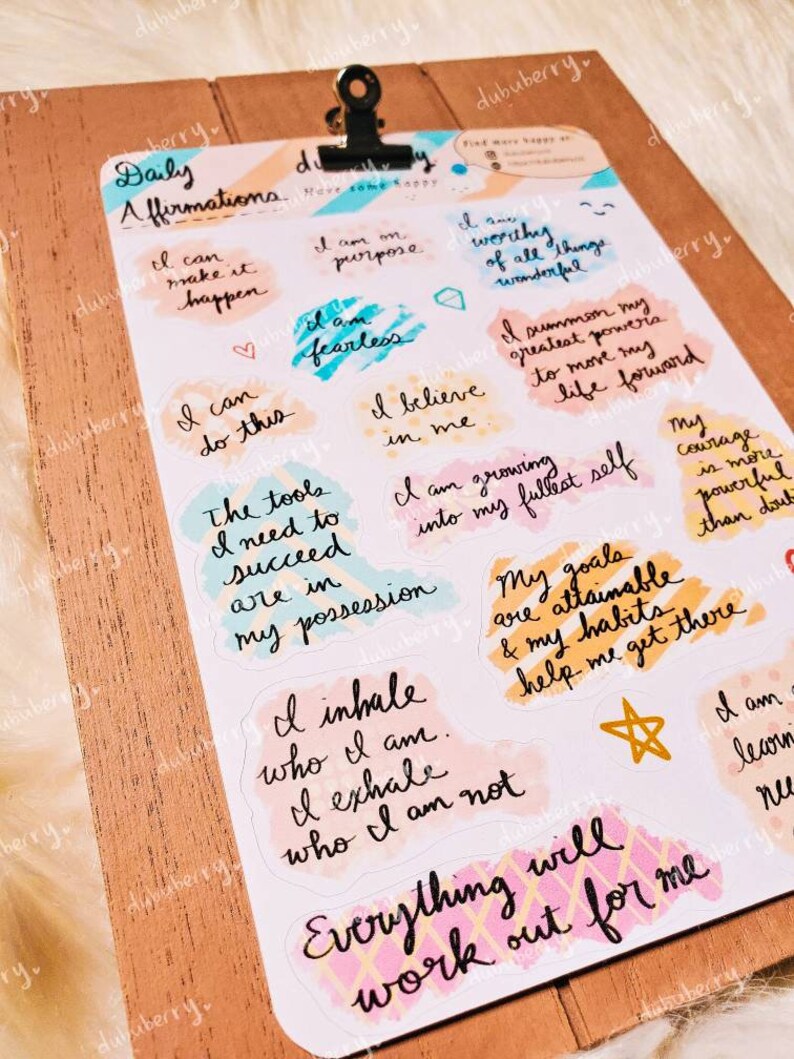 Daily
Affirmations
Have some happy
Find more happy at:
I can
make it
happen
I am on
purpose
I am
worthy
of all things
wonderful
I am
fearless
I summon my
greatest powers
to move my
life forward
I can
do this
I believe
in me
My
courage
is more
powerful
than doubt
I am growing
into my fullest self
The tools
I need to
succeed
are in
my possession
My goals
are attainable
& my habits
help me get there
I inhale
who I am.
I exhale
who I am not
I am
Everything will
work out for me
dububerry